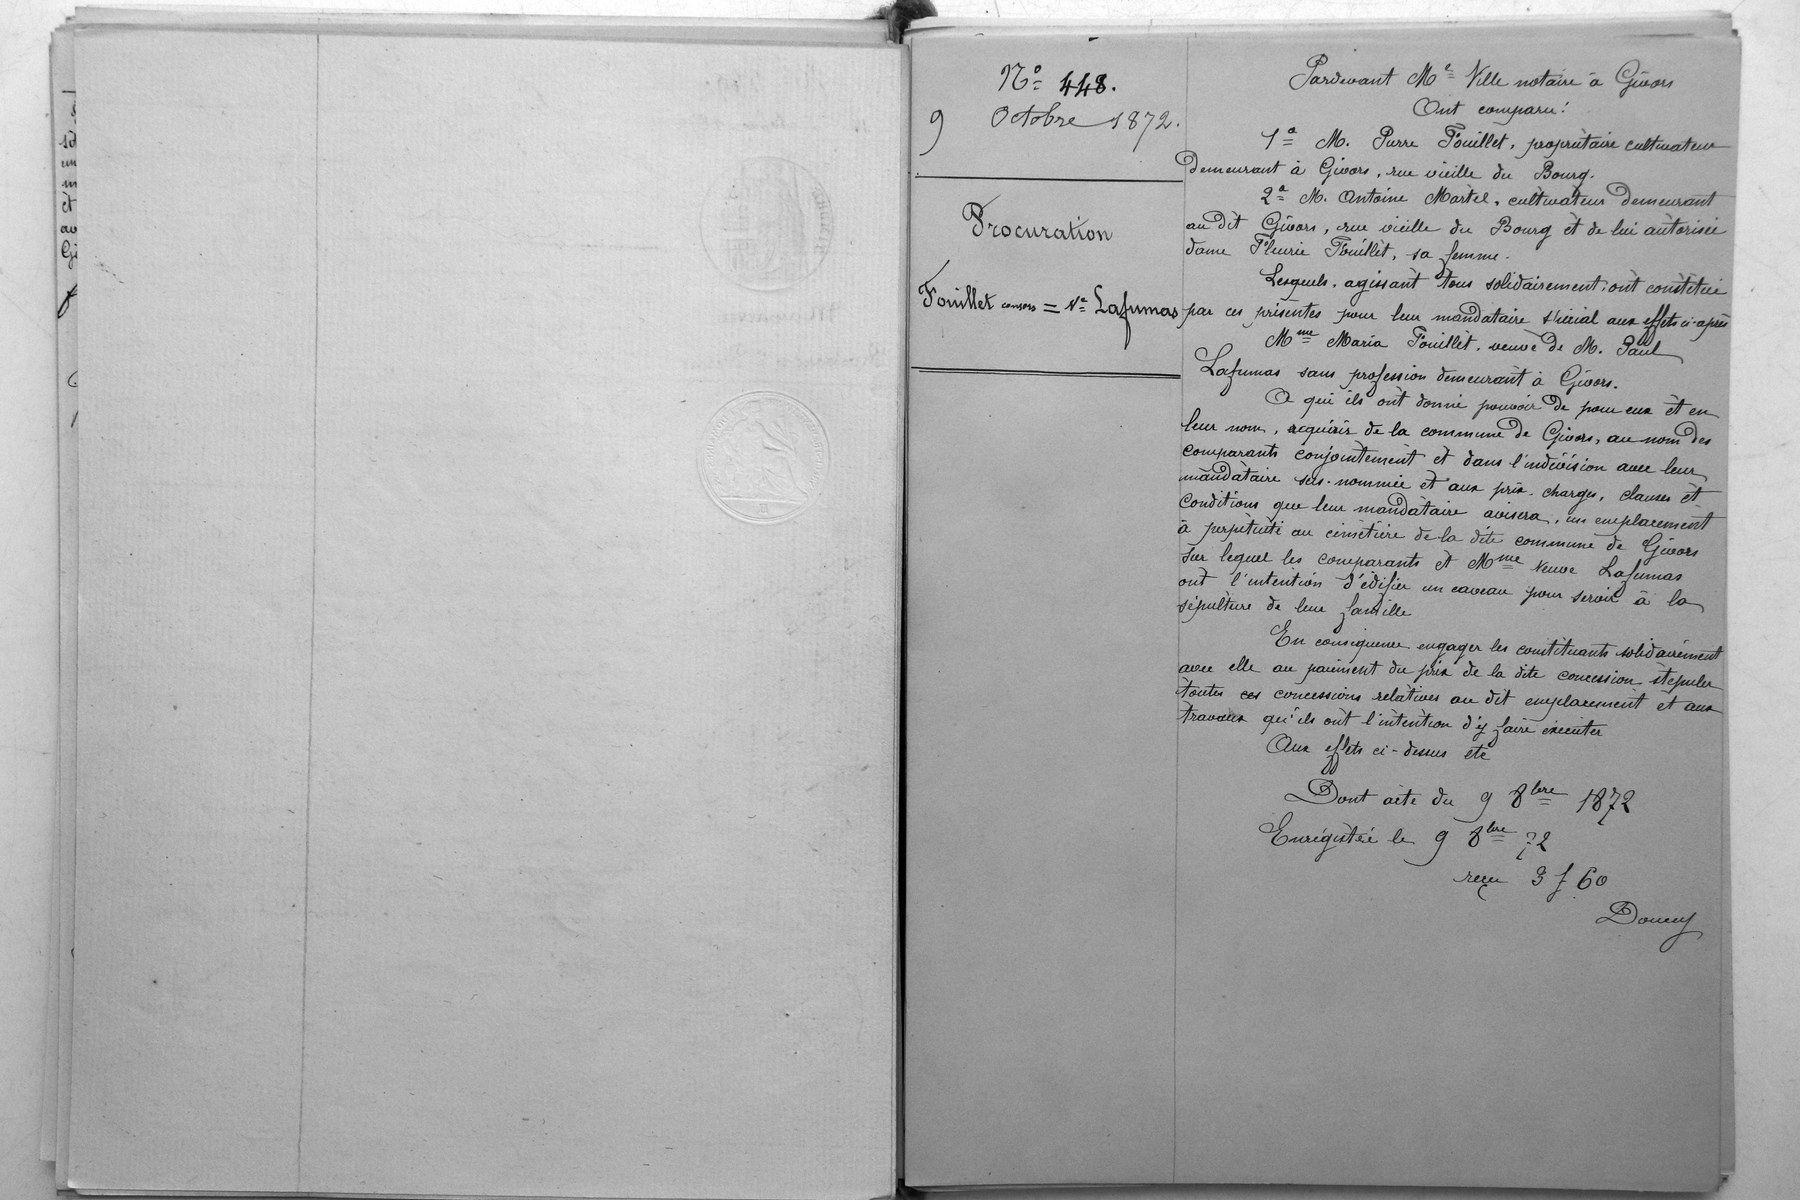 N° 448.
9 Octobre 1872.
Procuration
Fouillet consors = Ve Lafumas
Pardevant Me Ville notaire à Givors
Ont comparu :
1° M. Pierre Fouillet, propriétaire cultivateur
demeurant à Givors, rue vieille du Bourg.
2° M. Antoine Martel, cultivateur demeurant
au dit Givors, rue vieille du Bourg et de lui autorisée
dame Fleurie Fouillet, sa femme.
Lesquels, agissant tous solidairement, ont constitué
par ces présentes pour leur mandataire spécial aux effets ci-après
Mme Maria Fouillet, veuve de M. Paul
Lafumas sans profession demeurant à Givors.
A qui ils ont donné pouvoir de pour eux et en
leur nom, acquérir de la commune de Givors, au nom des
comparants conjointement et dans l'indivision avec leur
mandataire sus-nommée et aux prix, charges, clauses et
conditions que leur mandataire avisera, un emplacement
à perpétuité au cimetière de la dite commune de Givors
sur lequel les comparants et Mme Veuve Lafumas
ont l'intention d'édifier un caveau pour servir à la
sépulture de leur famille
En conséquence engager les constituants solidairement
avec elle au paiement du prix de la dite concession stipuler
toutes ces concessions relatives au dit emplacement et aux
travaux qu'ils ont l'intention d'y faire exécuter
Aux effets ci-dessus etc
Dont acte du 9 8bre 1872
Enregistré le 9 8bre 72
reçu 3 f 60